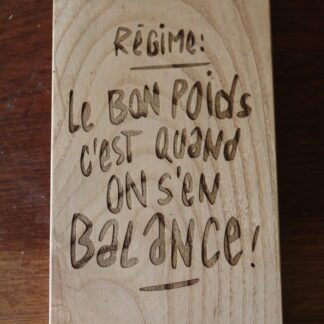 RÉGIME:
LE BON POIDS
C'EST QUAND
ON S'EN
BALANCE!